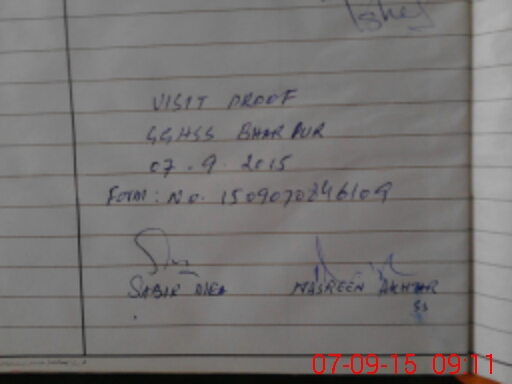 VISIT PROOF
GGHSS BHARPUR
07.9.2015
Form: No. 1509070846109
SABIR
NASREEN AKHTAR
SS
07-09-15 09:11